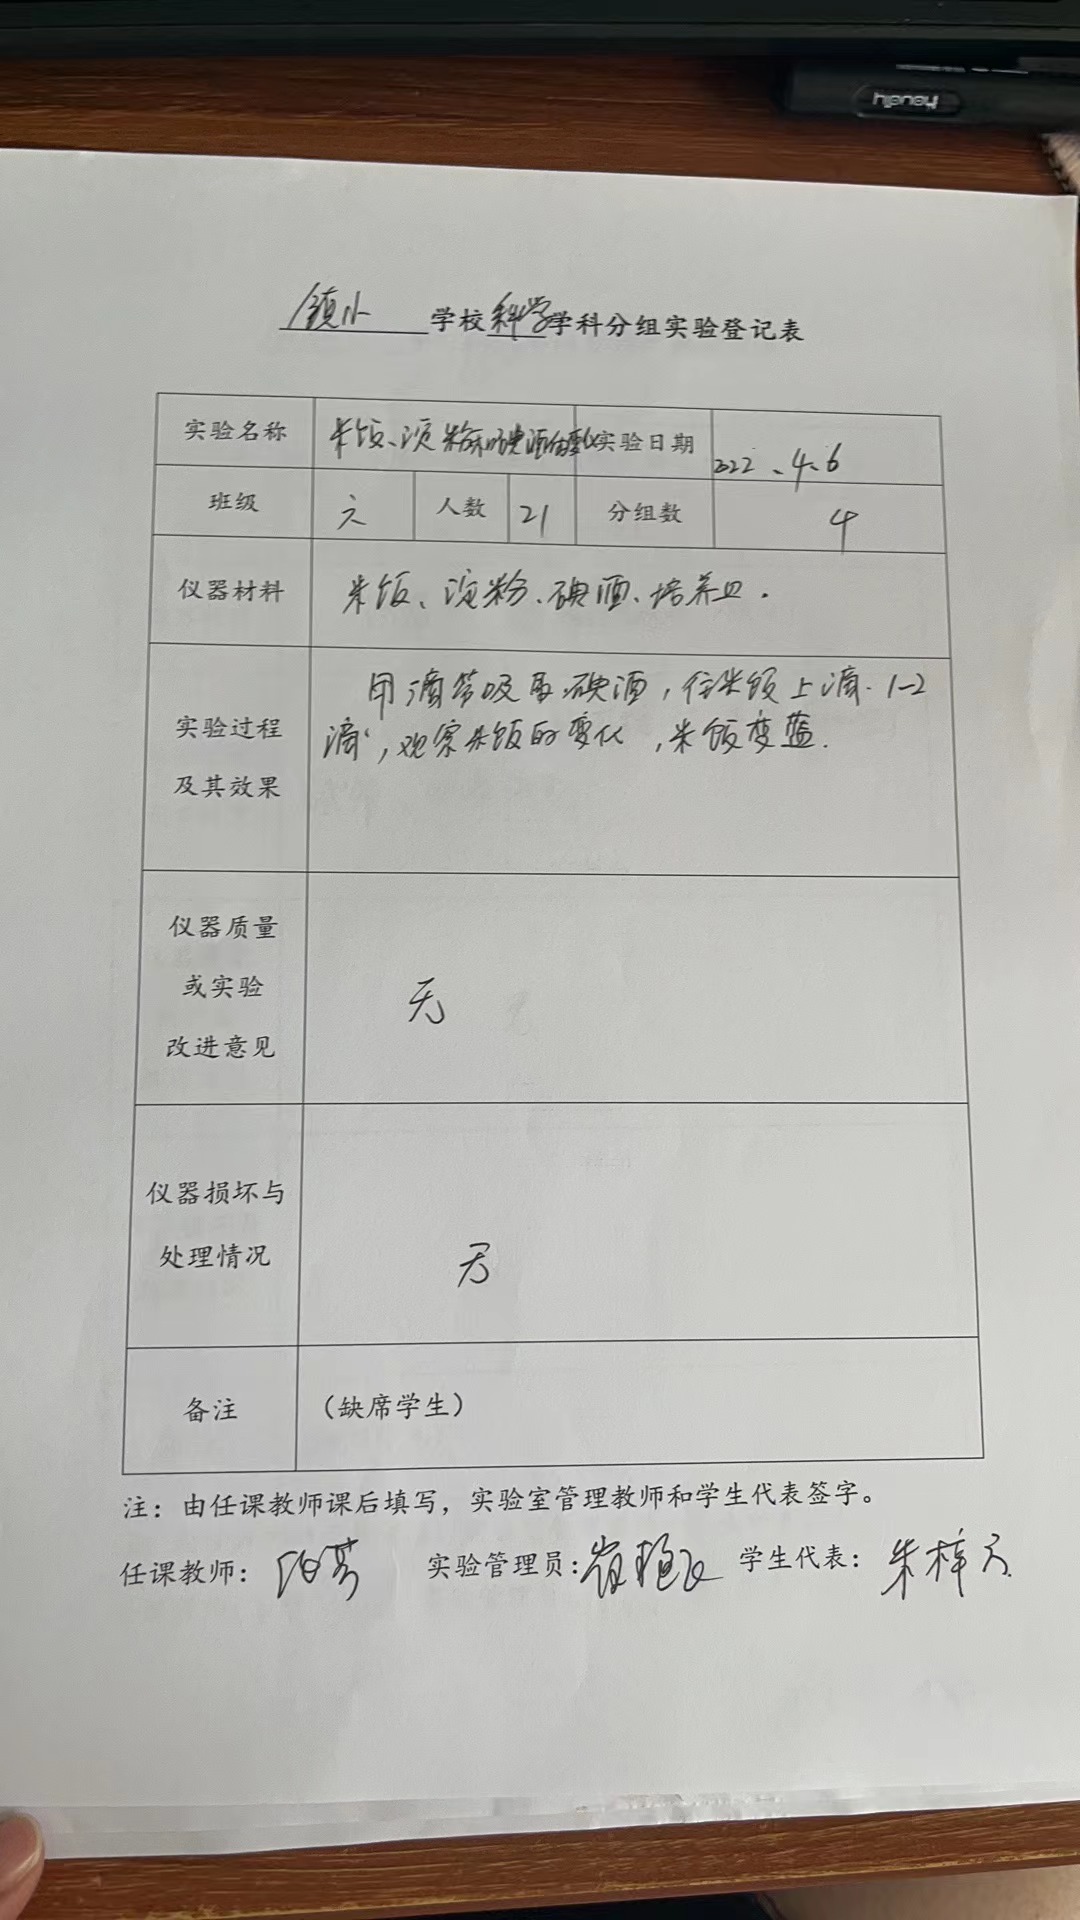 heudly
镇小 学校科学学科分组实验登记表
实验名称 米饭、淀粉和碘酒的变化 实验日期 2022、4、6
班级 六 人数 21 分组数 4
仪器材料 米饭、淀粉、碘酒、培养皿.
实验过程
及其效果
用滴管吸取碘酒,往米饭上滴1-2
滴,观察米饭的变化,米饭变蓝.
仪器质量
或实验
改进意见
无
仪器损坏与
处理情况
无
备注 (缺席学生)
注:由任课教师课后填写,实验室管理教师和学生代表签字。
任课教师: 实验管理员: 学生代表:朱梓